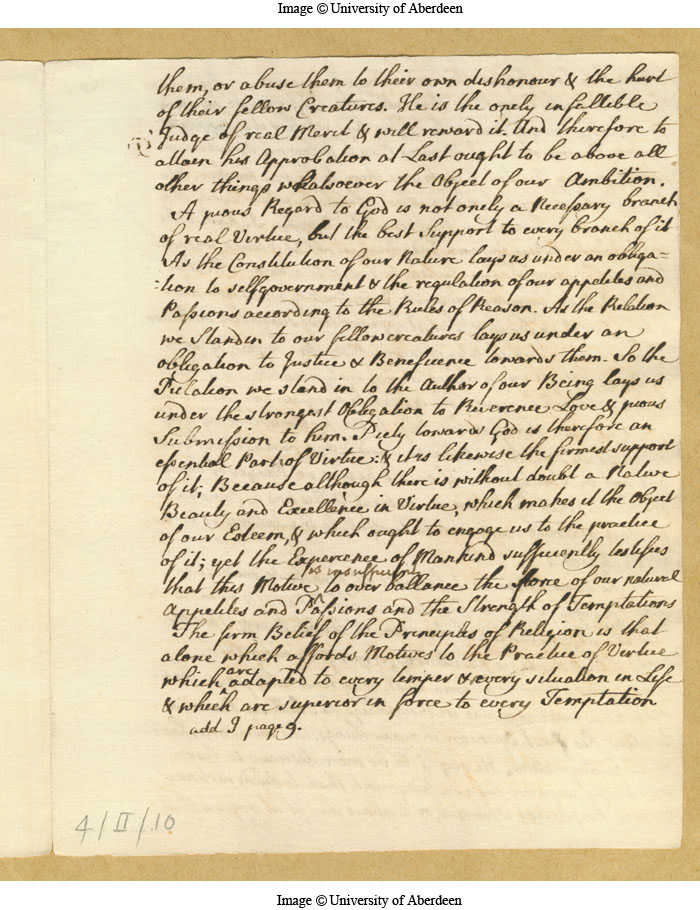 Image © University of Aberdeen
them, or abuse them to their own dishonour & the hurt
of their fellow Creatures. He is the onely infallible
Judge of real Merit & will reward it. And therefore to
attain his Approbation at Last ought to be above all
other things whatsoever the Object of our Ambition.
A pious Regard to God is not onely a Necessary branch
of real Virtue, but the best Support to every branch of it
As the Constitution of our Nature lays us under an obliga=
=tion to selfgovernment & the regulation of our appetites and
Passions according to the Rules of Reason. As the Relation
we Stand in to our fellowcreatures lays us under an
obligation to Justice & Beneficence towards them. So the
Relation we stand in to the Author of our Being lays us
under the strongest Obligation to Reverence Love & pious
Submission to him. Piety towards God is therefore an
essential Part of Virtue: & it is likewise the firmest support
of it; Because although there is without doubt a Native
Beauty and Excellence in Virtue, which makes it the Object
of our Esteem, & which ought to engage us to the practice
of it; yet the Experience of Mankind sufficiently testifies
is insufficient
that this Motive to over ballance the force of our natural
Appetites and Passions and the Strength of Temptations
The firm Belief of the Principles of Religion is that
alone which affords Motives to the Practice of Virtue
are
which adapted to every temper & every situation in Life
& which are superior in force to every Temptation
add I page 9.
4/II/10
Image © University of Aberdeen